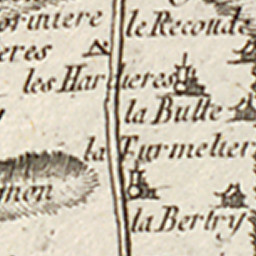 oriniere
le Reconde
eres
les Hardieres
la Butte
la Furmelier
mon
la Bertry